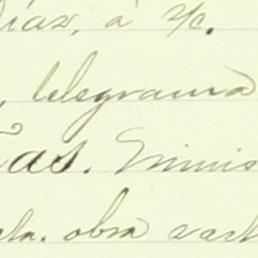 Díaz, á
, telegrama
as. Minis
ta. obra